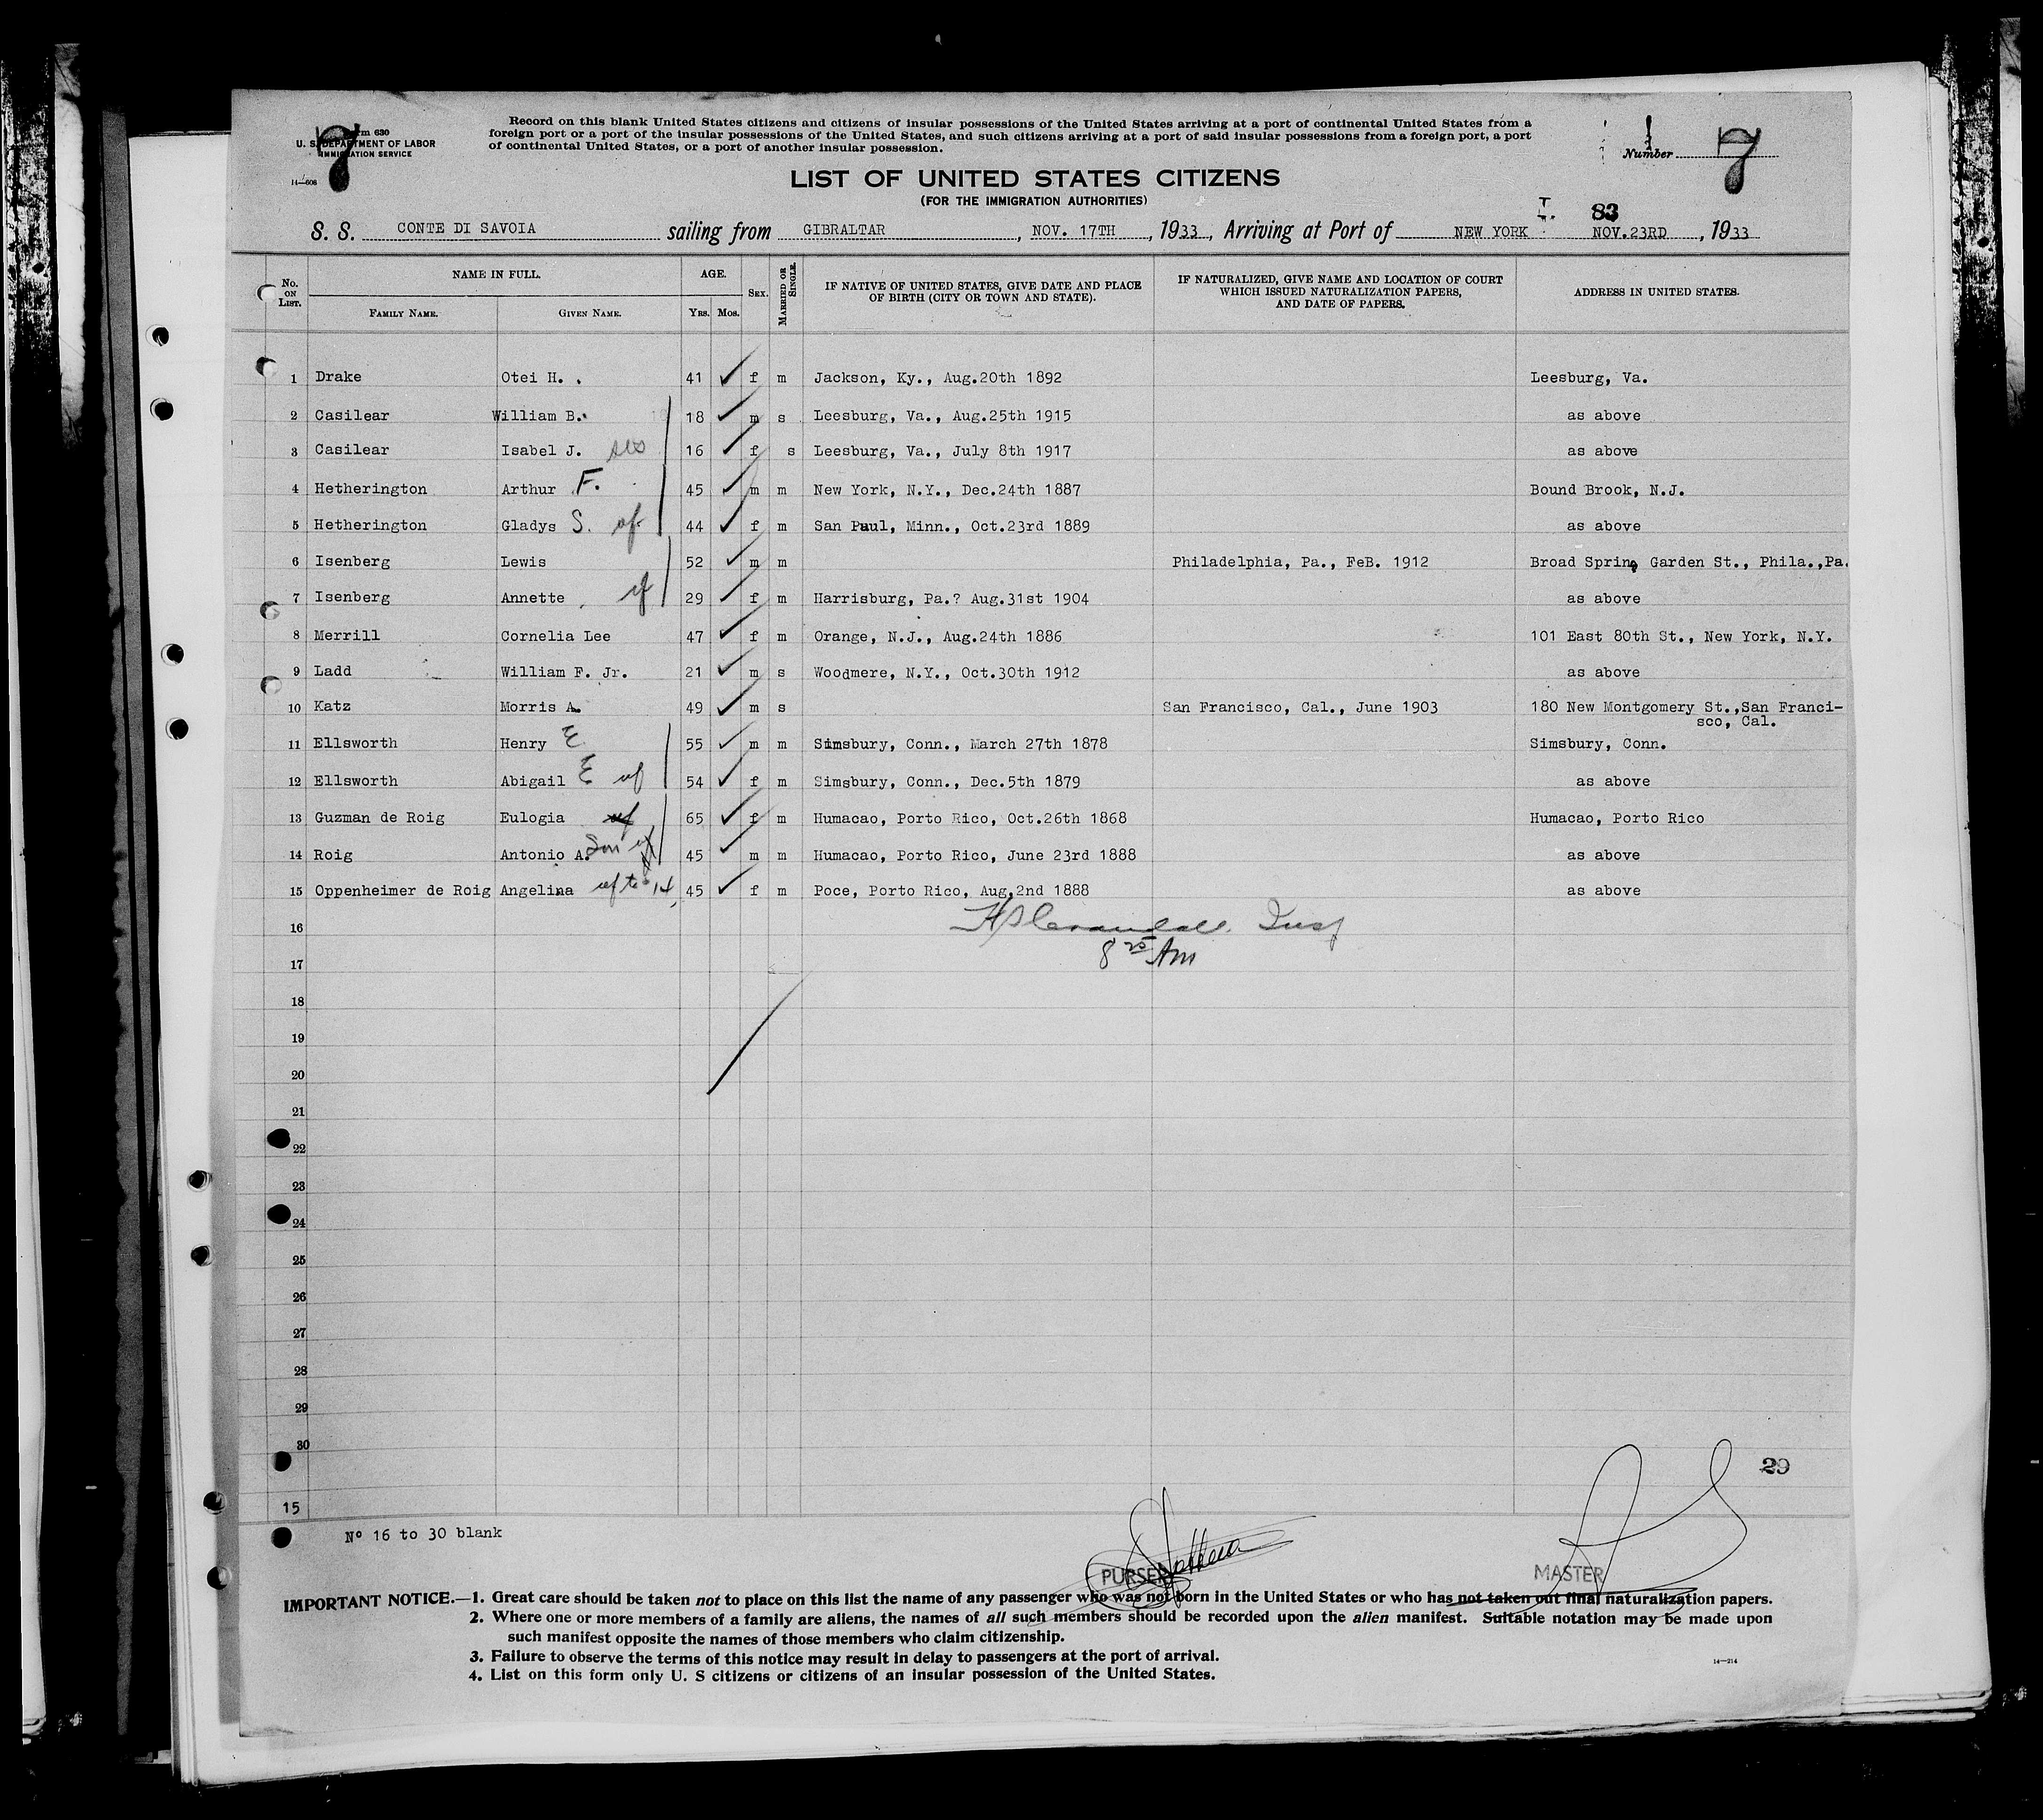 Form 630
U. S. DEPARTMENT OF LABOR
IMMIGRATION SERVICE
14—608
7
Record on this blank United States citizens and citizens of insular possessions of the United States arriving at a port of continental United States from a
foreign port or a port of the insular possessions of the United States, and such citizens arriving at a port of said insular possessions from a foreign port, a port
of continental United States, or a port of another insular possession.
1
Number 7
LIST OF UNITED STATES CITIZENS
(FOR THE IMMIGRATION AUTHORITIES)
83
S. S. CONTE DI SAVOIA sailing from GIBRALTAR, NOV. 17TH, 1933, Arriving at Port of NEW YORK NOV.23RD, 1933
No. ON LIST. NAME IN FULL. AGE. SEX. MARRIED OR SINGLE. IF NATIVE OF UNITED STATES, GIVE DATE AND PLACE OF BIRTH (CITY OR TOWN AND STATE). IF NATURALIZED, GIVE NAME AND LOCATION OF COURT WHICH ISSUED NATURALIZATION PAPERS, AND DATE OF PAPERS. ADDRESS IN UNITED STATES.
FAMILY NAME. GIVEN NAME. YRS. MOS.
1 Drake Otei H. . 41 f m Jackson, Ky., Aug.20th 1892 Leesburg, Va.
2 Casilear William B. 18 m s Leesburg, Va., Aug.25th 1915 as above
3 Casilear Isabel J. sis 16 f s Leesburg, Va., July 8th 1917 as above
4 Hetherington Arthur F. 45 m m New York, N.Y., Dec.24th 1887 Bound Brook, N.J.
5 Hetherington Gladys S. wf 44 f m San Paul, Minn., Oct.23rd 1889 as above
6 Isenberg Lewis 52 m m Philadelphia, Pa., FeB. 1912 Broad Spring Garden St., Phila.,Pa.
7 Isenberg Annette wf 29 f m Harrisburg, Pa.? Aug.31st 1904 as above
8 Merrill Cornelia Lee 47 f m Orange, N.J., Aug.24th 1886 101 East 80th St., New York, N.Y.
9 Ladd William F. Jr. 21 m s Woodmere, N.Y., Oct.30th 1912 as above
10 Katz Morris A. 49 m s San Francisco, Cal., June 1903 180 New Montgomery St.,San Franci-
sco, Cal.
11 Ellsworth Henry E 55 m m Simsbury, Conn., March 27th 1878 Simsbury, Conn.
12 Ellsworth Abigail E wf 54 f m Simsbury, Conn., Dec.5th 1879 as above
13 Guzman de Roig Eulogia wf 65 f m Humacao, Porto Rico, Oct.26th 1868 Humacao, Porto Rico
14 Roig Antonio A. Son 45 m m Humacao, Porto Rico, June 23rd 1888 as above
15 Oppenheimer de Roig Angelina wf to 14 45 f m Poce, Porto Rico, Aug.2nd 1888 as above
16 Insp
17 8 25 Am
18
19
20
21
22
23
24
25
26
27
28
29
30
29
15
Nº 16 to 30 blank
PURSER
MASTER
IMPORTANT NOTICE.—1. Great care should be taken not to place on this list the name of any passenger who was not born in the United States or who has not taken out final naturalization papers.
2. Where one or more members of a family are aliens, the names of all such members should be recorded upon the alien manifest. Suitable notation may be made upon
such manifest opposite the names of those members who claim citizenship.
3. Failure to observe the terms of this notice may result in delay to passengers at the port of arrival.
4. List on this form only U. S citizens or citizens of an insular possession of the United States.
14—214